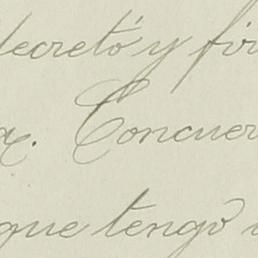 decretó y fir
a. Concuer
que tengo a